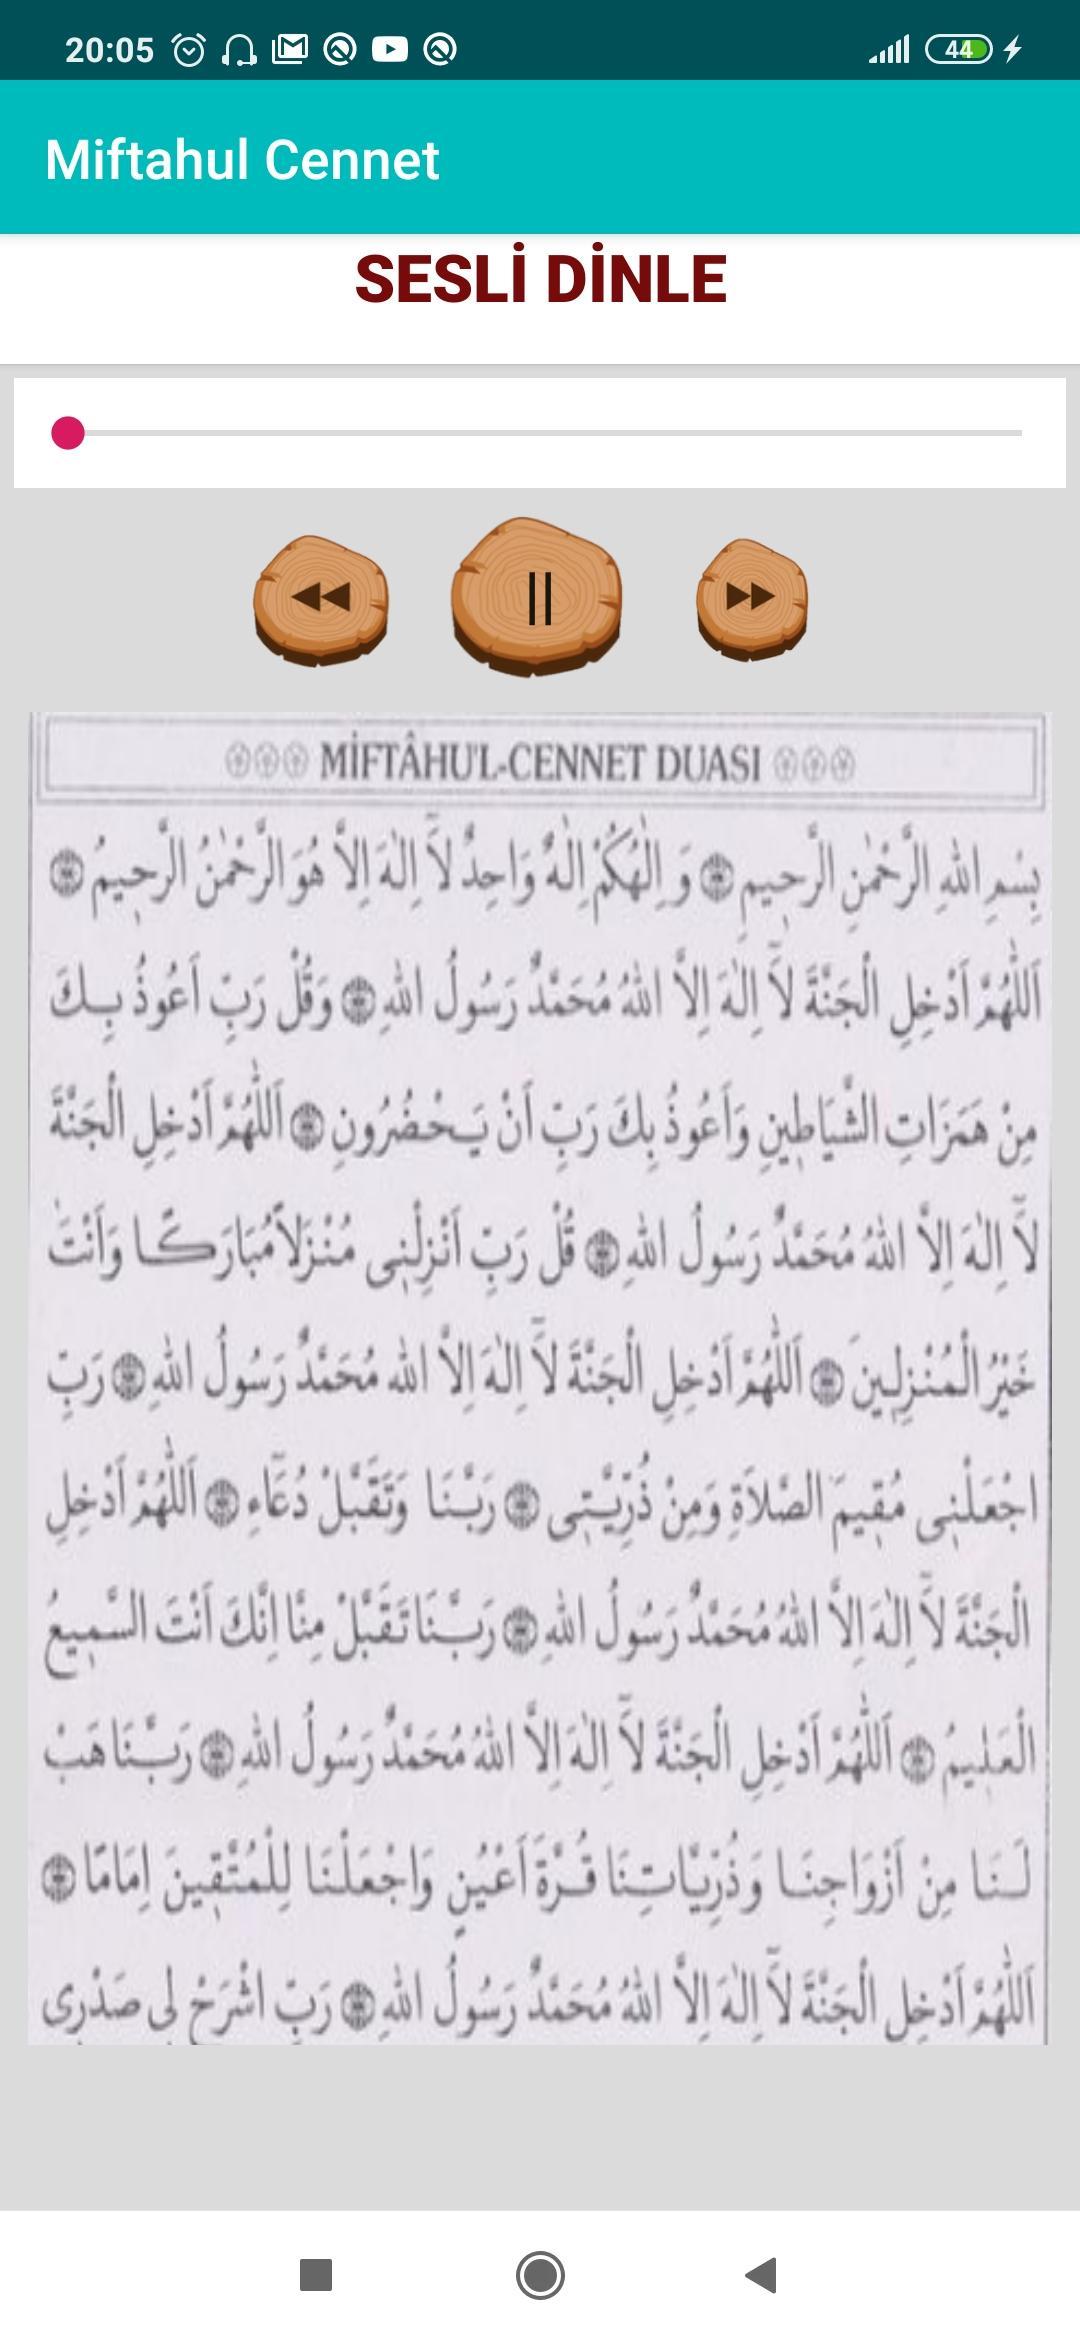 20:05
44
Miftahul Cennet
SESLİ DİNLE
MİFTÂHU'L-CENNET DUASI
بِسْمِ اللهِ الرَّحْمٰنِ الرَّحِيمِ وَ اِلٰهُكُمْ اِلٰهٌ وَاحِدٌ لَٓا اِلٰهَ اِلَّا هُوَ الرَّحْمٰنُ الرَّحِيمُ
اَللّٰهُمَّ اَدْخِلِ الْجَنَّةَ لَٓا اِلٰهَ اِلَّا اللهُ مُحَمَّدٌ رَسُولُ اللهِ وَقُلْ رَبِّ اَعُوذُ بِكَ
مِنْ هَمَزَاتِ الشَّيَاطِينِ وَاَعُوذُ بِكَ رَبِّ اَنْ يَحْضُرُونِ اَللّٰهُمَّ اَدْخِلِ الْجَنَّةَ
لَٓا اِلٰهَ اِلَّا اللهُ مُحَمَّدٌ رَسُولُ اللهِ قُلْ رَبِّ اَنْزِلْنِى مُنْزَلاً مُبَارَكًا وَاَنْتَ
خَيْرُ الْمُنْزِلِينَ اَللّٰهُمَّ اَدْخِلِ الْجَنَّةَ لَٓا اِلٰهَ اِلَّا الله مُحَمَّدٌ رَسُولُ اللهِ رَبِّ
اجْعَلْنِى مُقِيمَ الصَّلاَةِ وَمِنْ ذُرِّيَّتِى رَبَّنَا وَتَقَبَّلْ دُعَٓاءِ اَللّٰهُمَّ اَدْخِلِ
الْجَنَّةَ لَٓا اِلٰهَ اِلَّا اللهُ مُحَمَّدٌ رَسُولُ اللهِ رَبَّنَا تَقَبَّلْ مِنَّا اِنَّكَ اَنْتَ السَّمِيعُ
الْعَلِيمُ اَللّٰهُمَّ اَدْخِلِ الْجَنَّةَ لَٓا اِلٰهَ اِلَّا اللهُ مُحَمَّدٌ رَسُولُ اللهِ رَبَّنَا هَبْ
لَنَا مِنْ اَزْوَاجِنَا وَ ذُرِّيَّاتِنَا قُرَّةَ اَعْيُنٍ وَاجْعَلْنَا لِلْمُتَّقِينَ اِمَامًا
اَللّٰهُمَّ اَدْخِلِ الْجَنَّةَ لَٓا اِلٰهَ اِلَّا اللهُ مُحَمَّدٌ رَسُولُ اللهِ رَبِّ اشْرَحْ لِى صَدْرِى